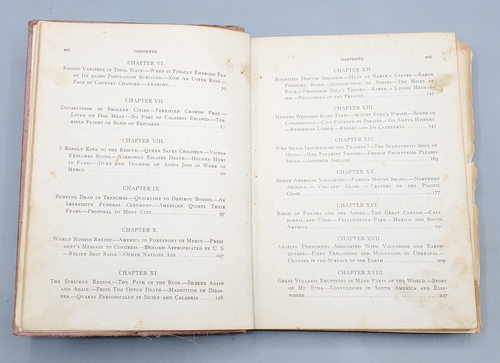 CONTENTS
CHAPTER VI
REGGIO VANISHES IN TIDAL WAVE.—WHEN IT FINALLY EMERGED FEW
OF ITS 50,000 POPULATION SURVIVED.—NOW AN UTTER RUIN.—
FACE OF COUNTRY CHANGED.—ANARCHY. 76
CHAPTER VII
DEVASTATION IN SMALLER CITIES.—TERRIFIED CROWDS PRAY.—
LIVED ON DOG MEAT.—NO PART OF CALABRIA ESCAPED.—TER-
RIBLE FLIGHT OF BAND OF REFUGEES.
CHAPTER VIII
A KINGLY KING TO THE RESCUE.—QUEEN SAVES CHILDREN.—VICTOR
EXPLORES RUINS.—NARROWLY ESCAPES DEATH.—HELENA HURT
IN PANIC.—DUKE AND DUCHESS OF AOSTA JOIN IN WORK OF
MERCY 90
CHAPTER IX
BURYING DEAD IN TRENCHES.—QUICKLIME TO DESTROY BODIES.—AN
IMPRESSIVE FUNERAL CEREMONY.—AMERICAN QUIETS THEIR
FEARS.—PROPOSAL TO MOVE CITY. 97
CHAPTER X
WORLD RUSHES RELIEF.—AMERICA IN FOREFRONT OF MERCY.—PRESI-
DENT'S MESSAGE TO CONGRESS.—$800,000 APPROPRIATED BY U. S.
—RELIEF SHIP SAILS.—OTHER NATIONS AID 107
CHAPTER XI
THE STRICKEN REGION.—THE PATH OF THE RUIN.—SHAKEN AGAIN
AND AGAIN.—PRIZE TOO OFTEN DEATH.—MAGNITUDE OF DISAS-
TER.—QUAKES PERIODICALLY IN SICILY AND CALABRIA 118
CONTENTS
CHAPTER XII
SCIENTISTS DISCUSS DISASTER.—HEAT AT EARTH'S CENTRE.—EARTH
PRESENTS RUINS.—SUGGESTION OF STRESS.—TEN MILES OF
ROCK.—PROFESSOR HILL'S THEORY.—EARTH A LIVING MECHAN-
ISM.—PHENOMENA OF THE PRESENT. 127
CHAPTER XIII
MESSINA WRECKED MANY TIMES.—MOUNT ETNA'S WRATH.—SCENE OF
CATASTROPHE.—CITY FOUNDED BY PIRATES.—ITS AWFUL MISERY.—
RESTORELESS LISBON.—REGGIO AND ITS CATHEDRAL. 145
CHAPTER XIV
WHO SHALL IMMORTALIZE THE TRAGEDY?—THE SYMPATHETIC SOUL OF
OUIDA.—HER FAVORITE THEMES.—FRENCH PROMPTNESS PLEASES
SICILY.—ANOTHER IRELAND. 163
CHAPTER XV
NORTH AMERICAN VOLCANOES.—FAMOUS MOUNT SHASTA.—NORTHERN
ARIZONA.—VOLCANIC GLASS.—CRATERS ON THE PACIFIC
COAST 177
CHAPTER XVI
RIDGE OF PANAMA AND THE ANDES.—THE GREAT CENTER.—CALI-
FORNIA AND UTAH.—YELLOWSTONE PARK.—MEXICO AND SOUTH
AMERICA. 191
CHAPTER XVII
AMAZING PHENOMENA ASSOCIATED WITH VOLCANOES AND EARTH-
QUAKES.—FIERY EXPLOSIONS AND MOUNTAINS IN UPHEAVAL.—
CHANGES IN THE SURFACE OF THE EARTH 209
CHAPTER XVIII
GREAT VOLCANIC ERUPTIONS IN MANY PARTS OF THE WORLD.—STORY
OF MT. ETNA.—CONVULSIONS IN SOUTH AMERICA AND ELSE-
WHERE 227